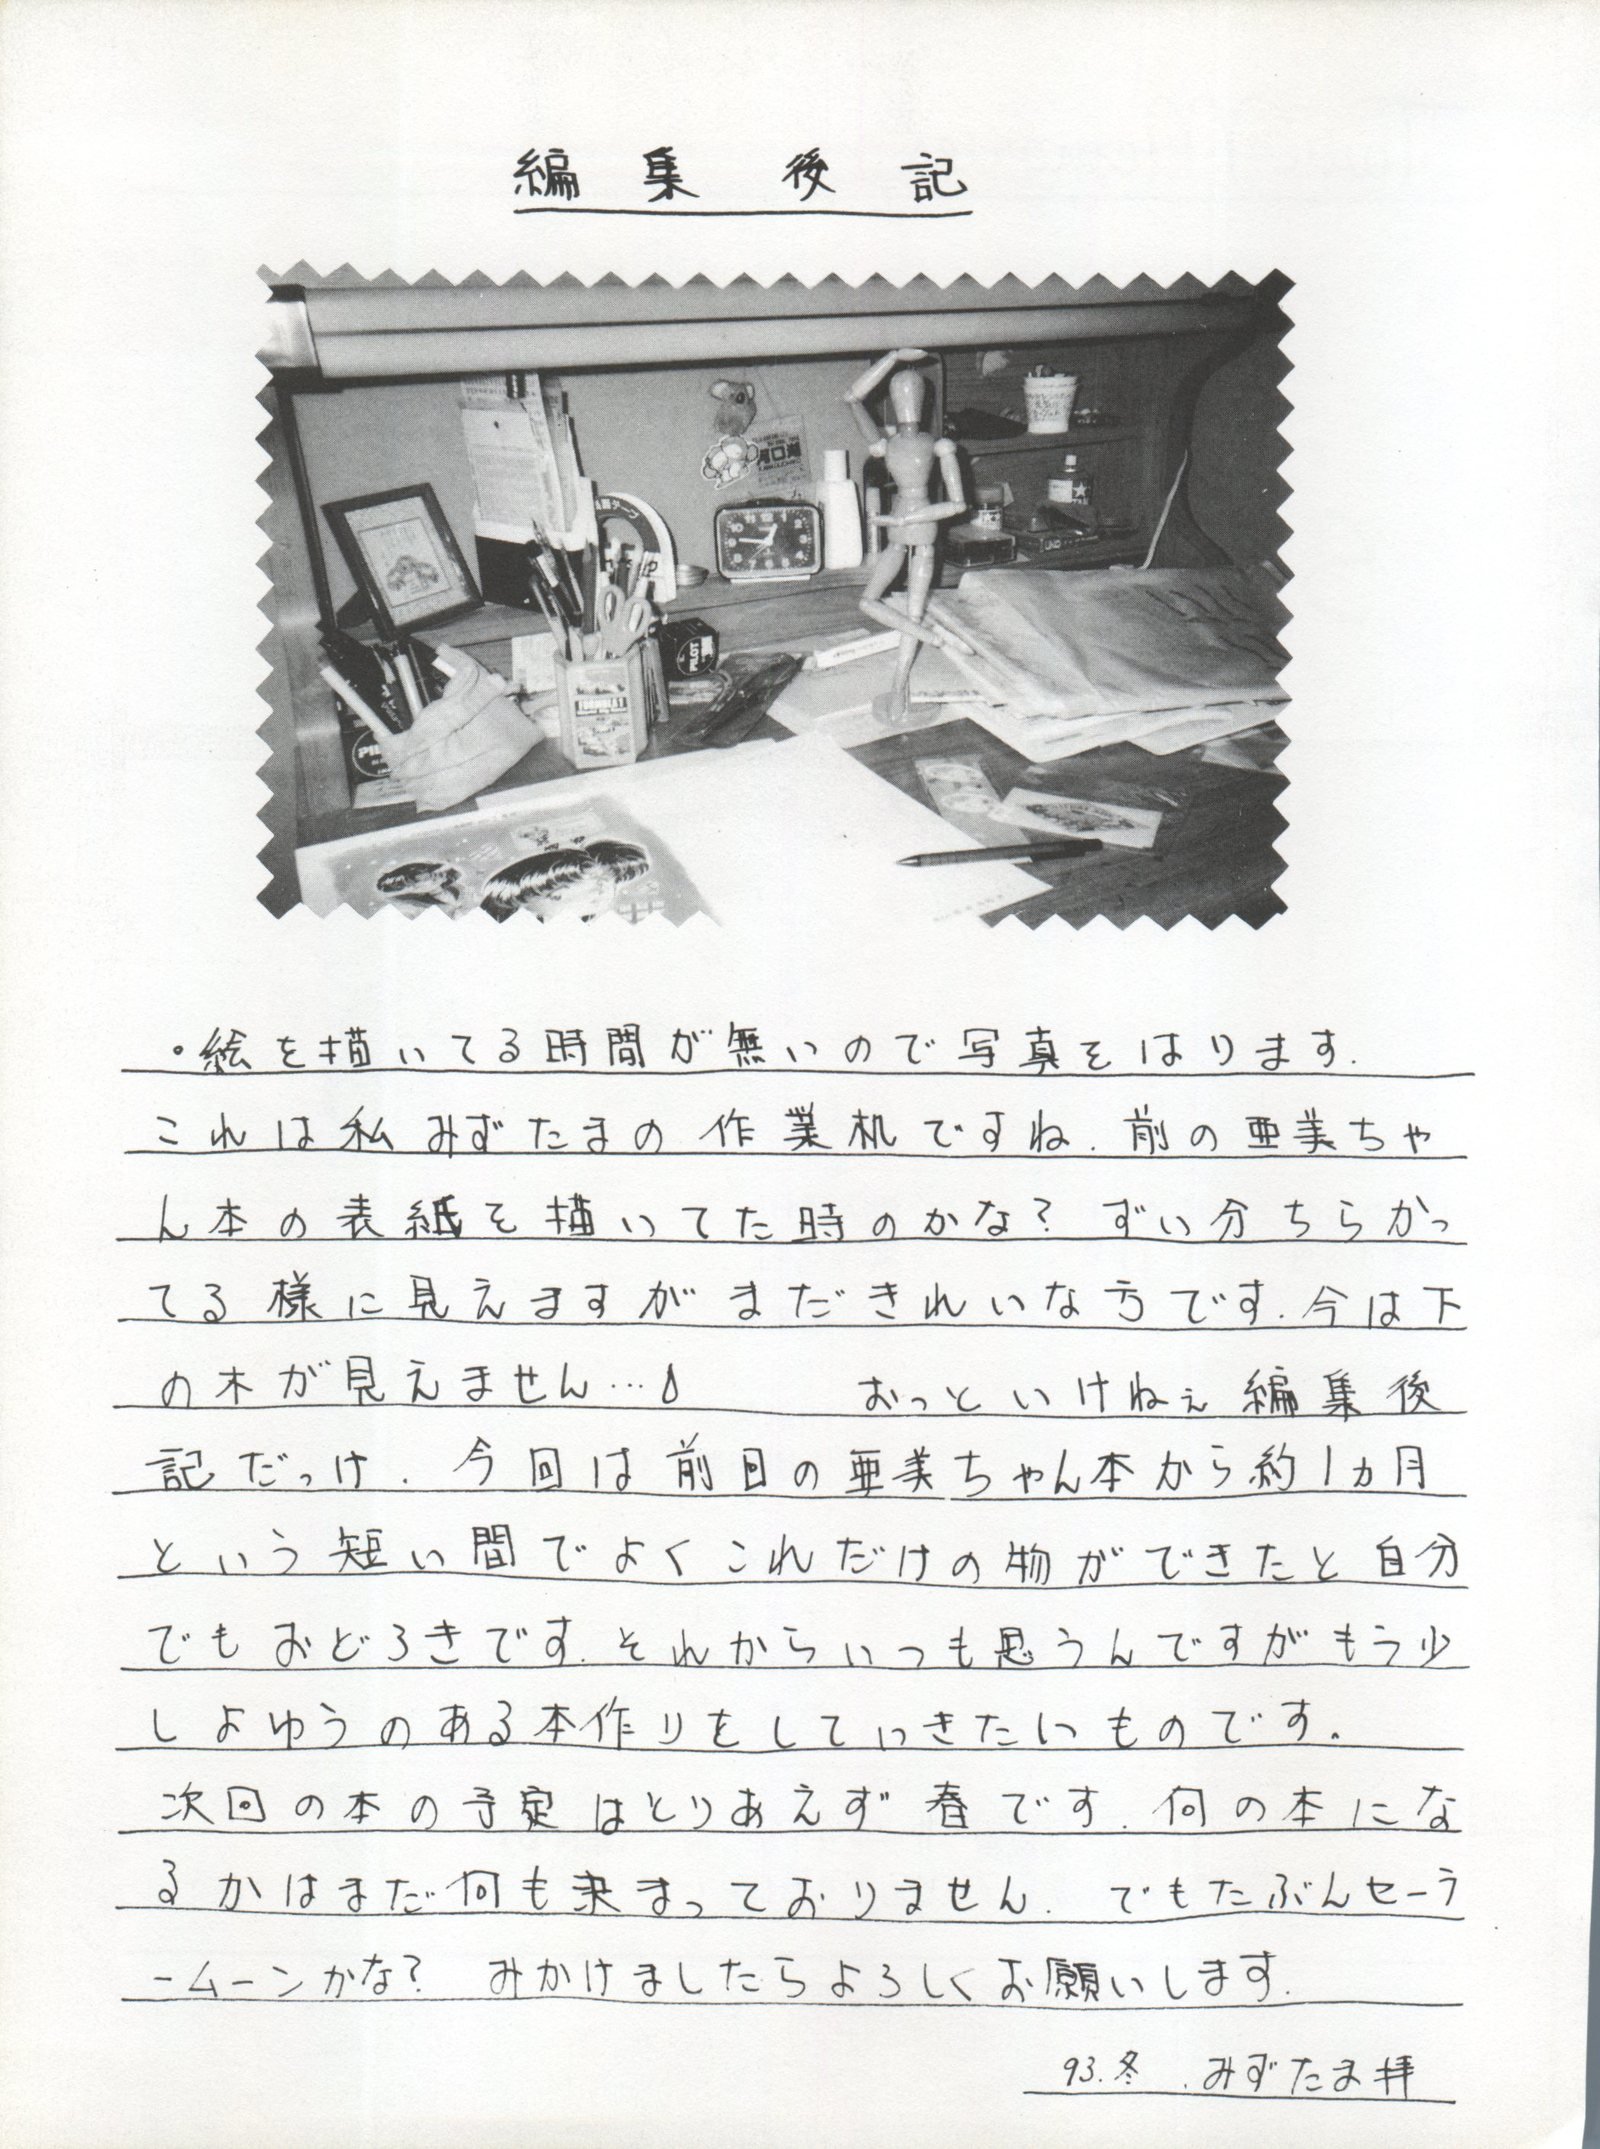 編集後記
河口湖
両面テープ
PILOT
FORMULA 1
UNO
・絵を描いてる時間が無いので写真をはります.
これは私みずたまの作業机ですね.前の亜美ちゃ
ん本の表紙を描いてた時のかな?ずい分ちらかっ
てる様に見えますがまだきれいな方です.今は下
の木が見えません…　おっといけねぇ編集後
記だっけ.今回は前回の亜美ちゃん本から約1ヵ月
という短い間でよくこれだけの物ができたと自分
でもおどろきです.それからいつも思うんですがもう少
しよゆうのある本作りをしていきたいものです。
次回の本の予定はとりあえず春です.何の本にな
るかはまだ何も決まっておりません.でもたぶんセーラ
ームーンかな?みかけましたらよろしくお願いします.
93.冬.みずたま拝